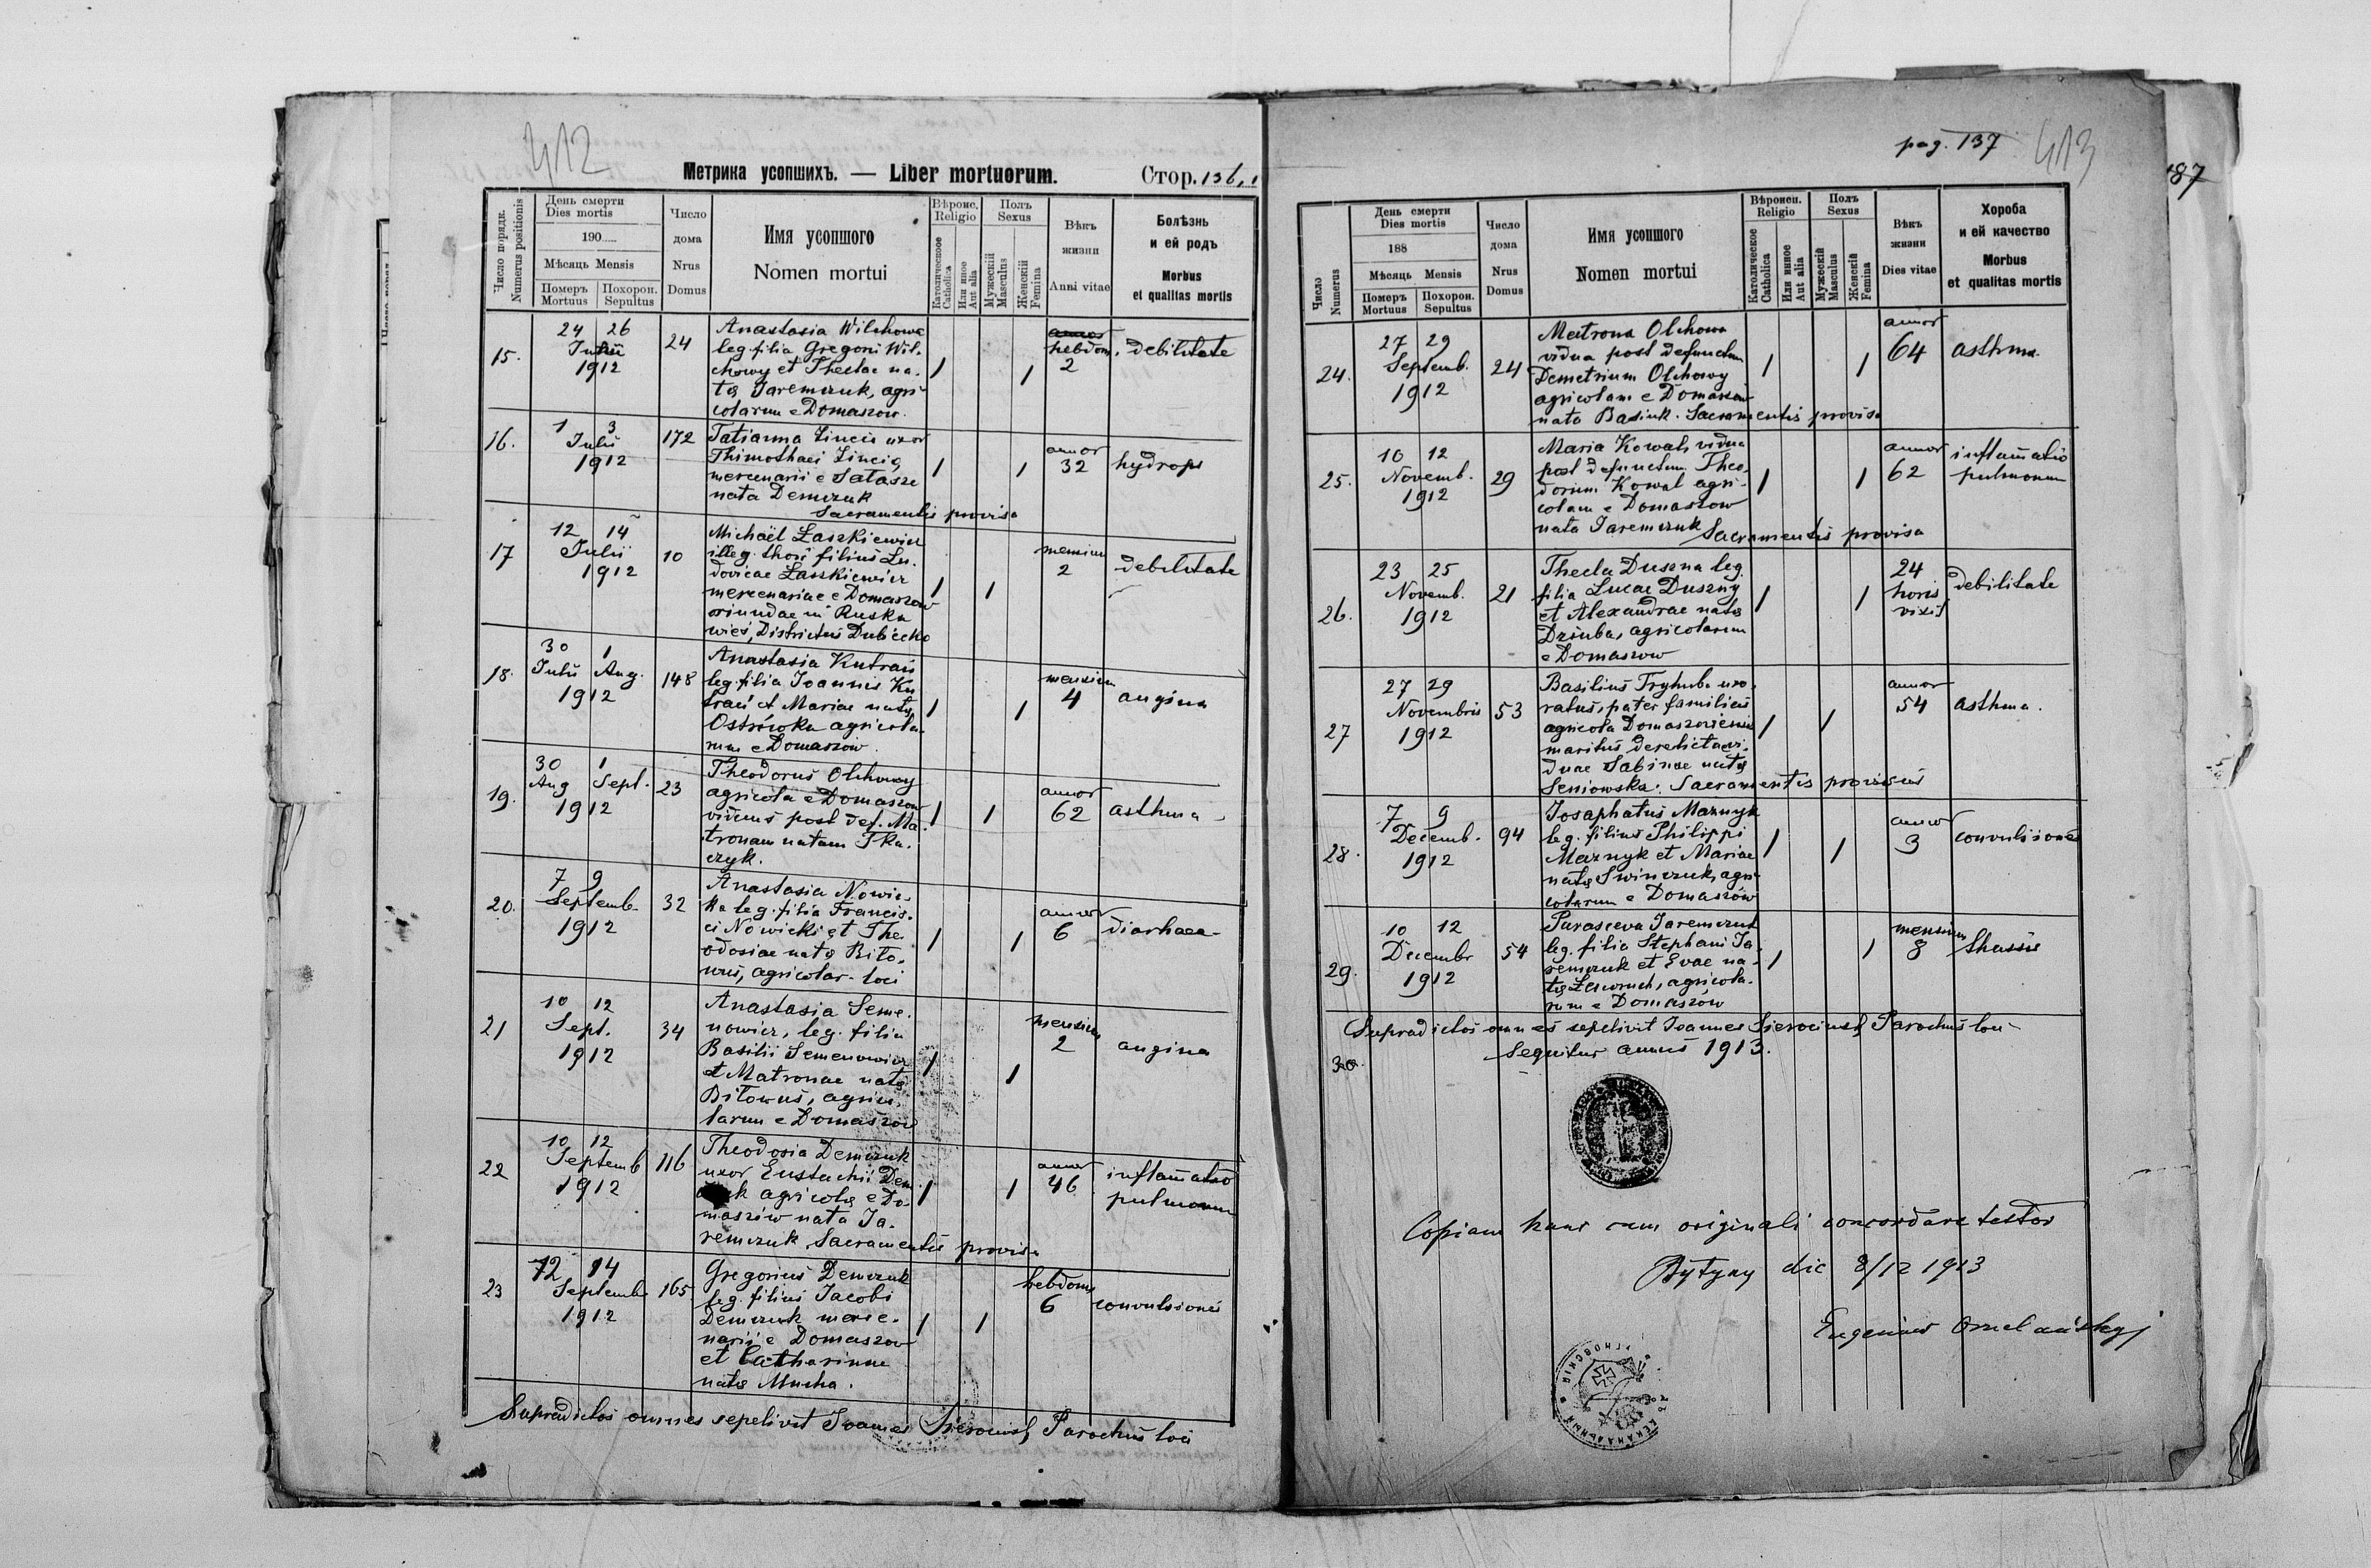 412
Метрика усопшихъ. — Liber mortuorum.
Стор. 136,
Число порядк.
Numerus positionis
День смерти
Dies mortis
190
Мѣсяць Mensis
Померъ
Mortuus
Похорон.
Sepultus
Число
дома
Nrus
Domus
Имя усопшого
Nomen mortui
Вѣроис.
Religio
Католическое
Catholica
Или иное
Aut alia
Полъ
Sexus
Мужескій
Masculus
Женскій
Femina
Вѣкъ
жизни
Anni vitae
Болѣзнь
и ей родъ
Morbus
et qualitas mortis
15.
24 26
1912
24
Anastasia Wilchowa
leg. filia Gregorii Wil-
chowy et Theclae na-
tę Jaremczuk, agri-
colarum e Domaszow.
1
1
hebdom.
2
debilitate
16.
1 3
Julii
1912
172
Tatianna Zincio uxor
Thimothaei Zincio,
mercenarii e Satasze
nata Demczuk
Sacramentis provisa
1
1
annor
32
hydrops
17
12 14
Julii
1912
10
Michaël Łaszkiewicz
illeg. thori filius Lu-
dovicae Łaszkiewicz
mercenariae e Domaszow
oriundae in Ruska
wieś, Districtus Dubiecko
1
1
mensium
2
debilitate
18.
30 1
Julii Aug.
1912
148
Anastasia Kutrań
leg. filia Joannis Ku
trań et Mariae natę
Ostrówka agricola-
rum e Domaszów.
1
1
mensium
4
angina
19.
30 1
Aug Sept.
1912
23
Theodorus Olchowy
agricola e Domaszow
viduus post def. Ma-
tronam natam Tka-
czyk.
1
1
annor
62
asthma
20.
7 9
Septemb.
1912
32
Anastasia Nowic-
ka leg. filia Francis-
ci Nowicki et The
odosiae natę Bito-
wus, agricolar. loci
1
1
annor
6
diarhaea
21
10 12
Sept.
1912
34
Anastasia Seme-
nowicz, leg. filia
Basilii Semenowicz
et Matronae natę
Bitowus, agrico-
larum e Domaszow
1
1
mensium
2
angina
22
10 12
Septemb
1912
116
Theodosia Demczuk
uxor Eustachii Dem
agricolę e Do-
maszów nata Ja-
remczuk, Sacramentis provisa
1
1
annor
46
inflam̄atio
pulmonum
23
12 14
Septemb
1912
165
Gregorius Demczuk
leg. filius Jacobi
Demczuk merce-
narii e Domaszow
et Catharinae
natę Mucha.
1
1
hebdom
6
convulsiones
Supradictos omnes sepelivit Joannes Parochus loci
pag. 137
413
187
Число
Numerus
День смерти
Dies mortis
188
Мѣсяць Mensis
Померъ
Mortuus
Похорон.
Sepultus
Число
дома
Nrus
Domus
Имя усопшого
Nomen mortui
Вѣроисп.
Religio
Католическое
Catholica
Или иное
Aut alia
Полъ
Sexus
Мужескій
Masculus
Женскій
Femina
Вѣкъ
жизни
Dies vitae
Хороба
и ей качество
Morbus
et qualitas mortis
24.
27 29
Septemb.
1912
24
Matrona Olchowa
vidua post defunctum
Demetrium Olchowy
agricolam e Domaszow
nata Basiuk. Sacramentis provisa
1
1
annor
64
asthma.
25.
10 12
Novemb.
1912
29
Maria Kowal, vidua
post defunctum Theo-
dorum Kowal agri-
colam e Domaszow
nata Jaremczuk Sacramentis provisa
1
1
annor
62
inflam̄atio
pulmonum
26.
23 25
Novemb.
1912
21
Thecla Duszna leg.
filia Lucae Duszny
et Alexandrae natę
Dziuba, agricolarum
e Domaszow
1
1
24
horis
vixit
debilitate
27
27 29
Novembris
1912
53
Basilius Tryhuba uxo-
ratus, pater familias
agricola Domaszoviensis
maritus derelictae vi-
duae Sabinae natę
Seniowska. Sacramentis provisus
1
1
annor
54
asthma.
28.
7 9
Decemb.
1912
94
Josaphatus Maznyk
leg. filius Philippi
Maznyk et Mariae
natę Swinczuk, agri-
colarum e Domaszów
1
1
annor
3
convulsiones
29.
10 12
Decembr
1912
54
Parasceva Jaremczuk
leg. filia Stephani Ja-
remczuk et Evae na-
tę agricola-
rum e Domaszów
1
1
mensium
8
thussis
Supradictos omnes sepelivit Joannes Parochus loci
Sequitur annus 1913.
30.
Copiam hanc cum originali concordare testor
Bytyny die 8/12 1913
Eugenius